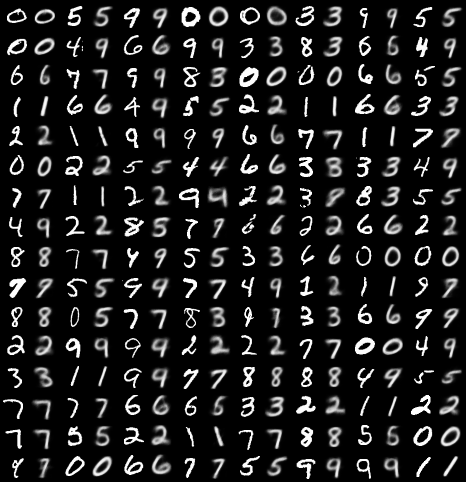 0 0 5 5 9 9 0 0 0 0 3 3 9 9 5 5
0 0 4 9 6 6 9 9 3 3 8 3 6 6 4 9
6 6 7 7 9 9 8 3 0 0 0 0 6 6 5 5
1 1 6 6 4 9 5 5 2 2 1 1 6 6 3 3
2 2 1 1 9 9 9 9 6 6 7 7 1 1 7 9
0 0 2 2 5 5 4 4 6 6 3 3 3 3 4 9
7 7 1 1 2 2 9 9 2 2 3 9 8 3 5 5
4 9 2 2 8 5 7 9 6 6 2 2 6 6 2 2
8 8 7 7 4 9 5 5 3 3 6 6 0 0 0 0
9 9 5 5 9 9 7 7 4 9 1 2 1 1 9 9
8 8 0 5 7 7 8 3 9 3 3 6 6 9 9
2 2 9 9 9 9 2 2 2 2 7 7 0 0 4 9
3 3 1 1 9 9 7 7 8 8 8 8 4 9 5 5
7 7 7 7 6 6 6 5 3 3 2 2 1 1 2 2
7 7 5 5 2 2 1 1 7 7 8 8 5 5 0 0
9 7 0 0 6 6 7 7 5 5 9 9 9 9 1 1